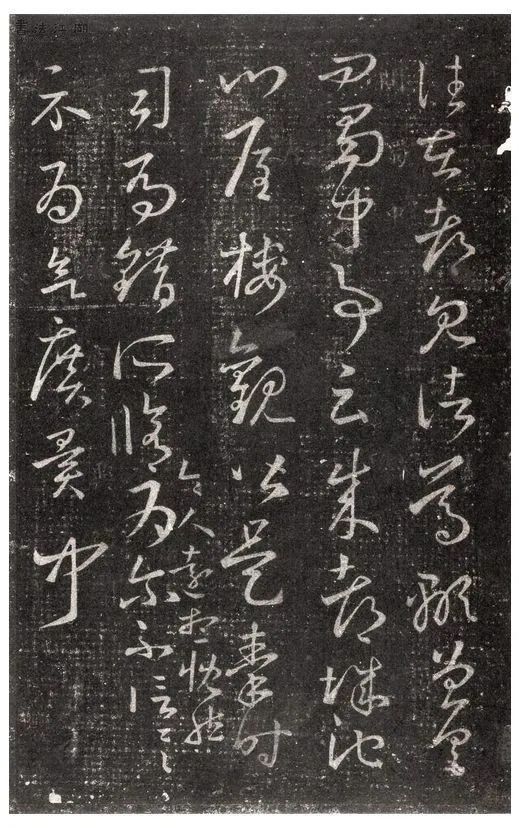 書法江湖
往在都見諸葛顒曾具
問蜀中事云成都城池
門屋樓觀皆是秦時
司馬錯所脩
令人遠想慨然
為爾不信一一
示為欲廣異聞